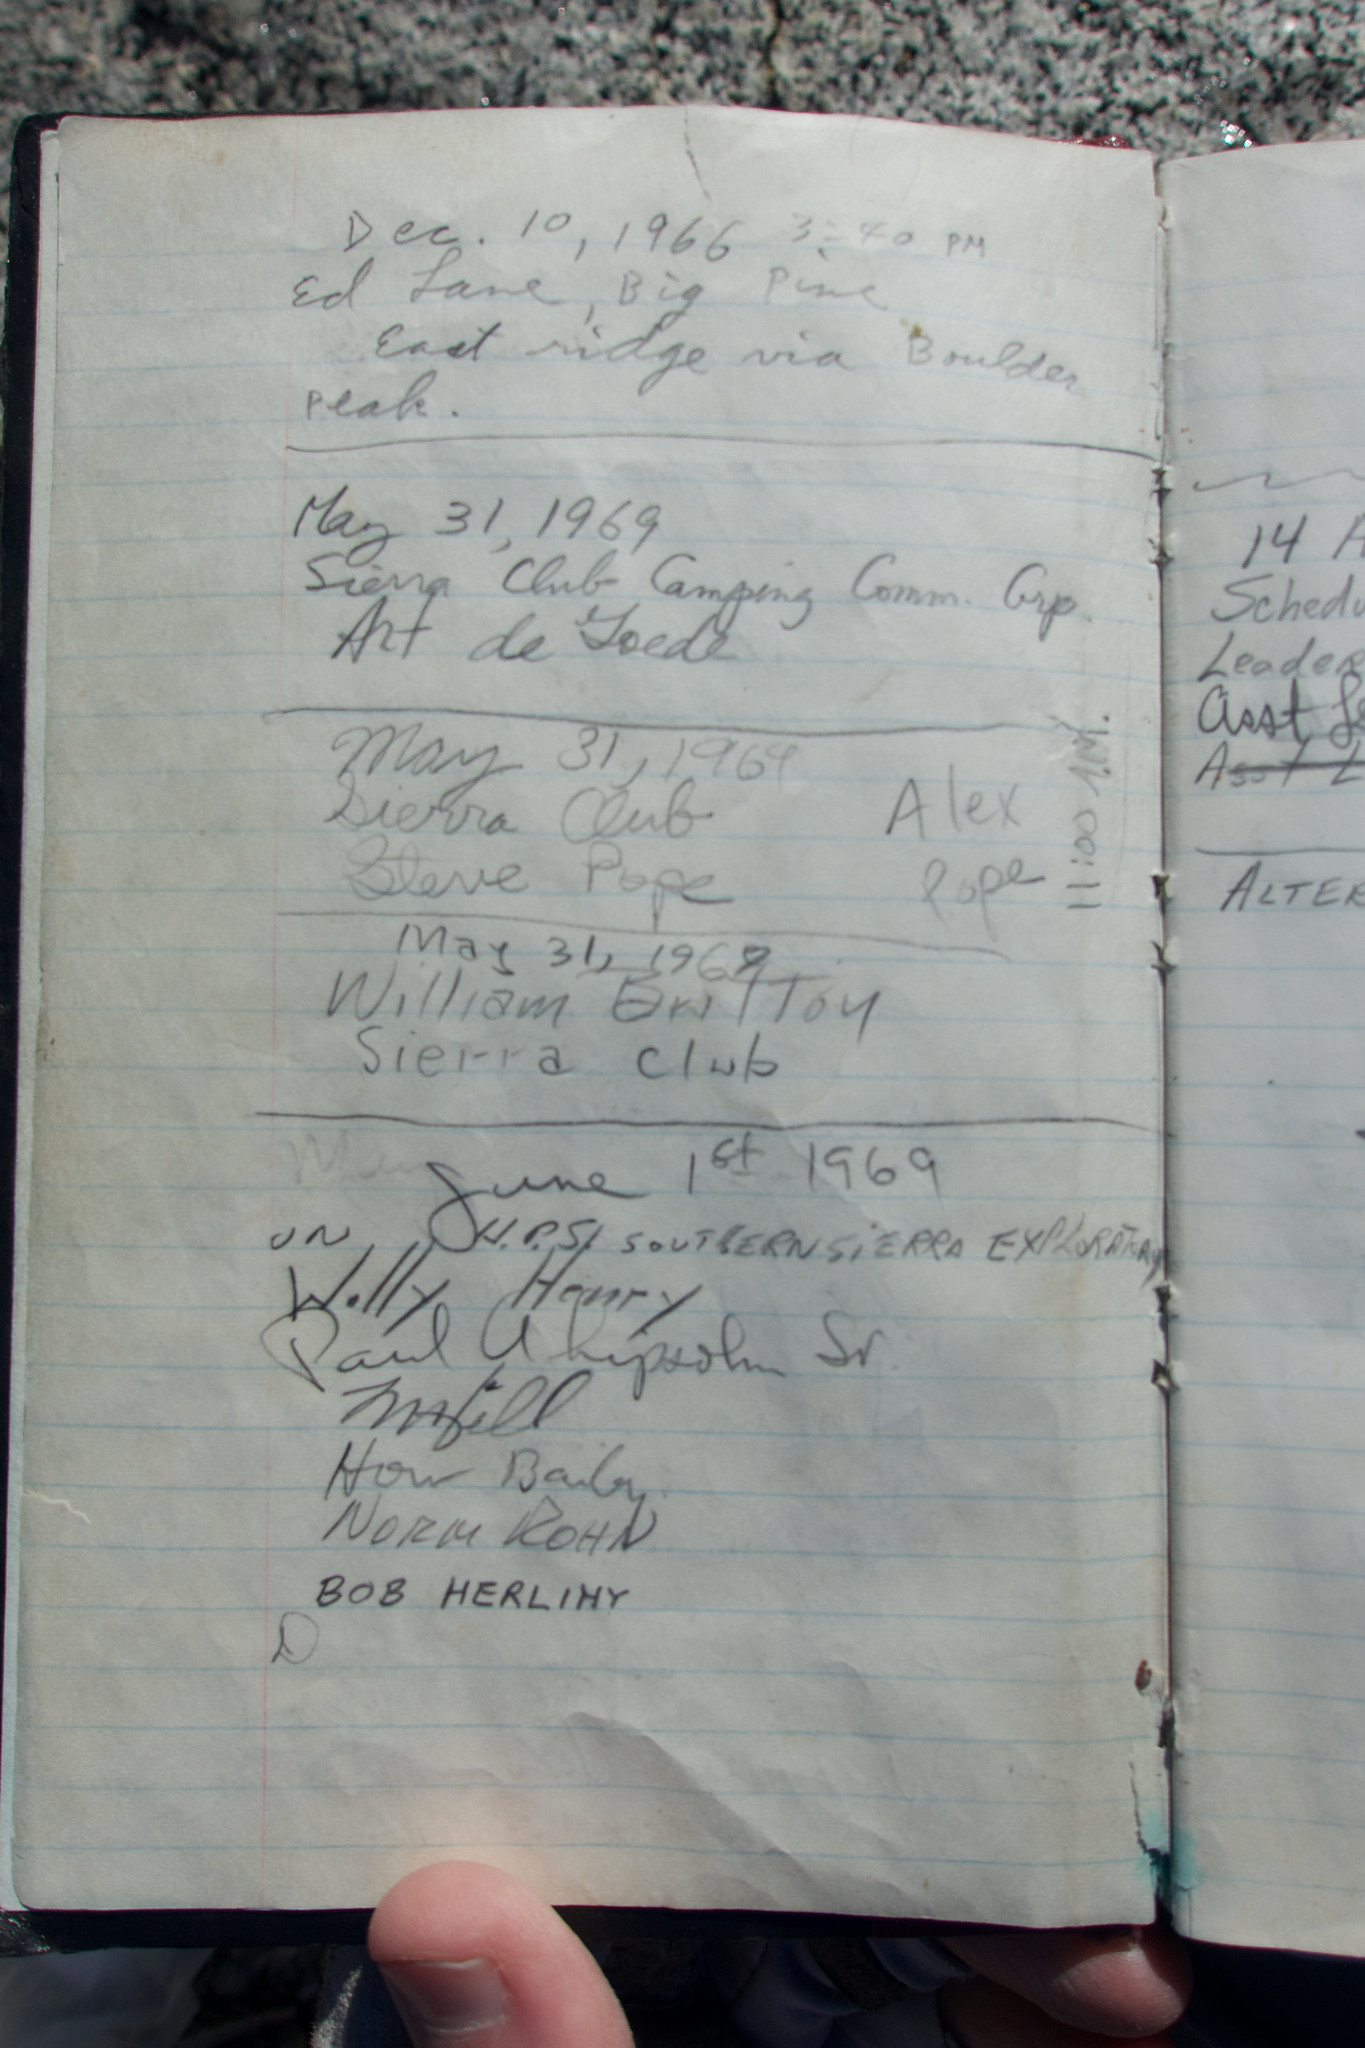 Dec. 10, 1966 3:40 PM
Ed Lane, Big Pine
East ridge via Boulder
peak.
May 31, 1969
Sierra Club Camping Comm. Grp.
Art de Goede
May 31, 1969
Sierra Club
Steve Pope
Alex
Pope
11:00 A.M.
May 31, 1969
William Britton
Sierra Club
June 1st 1969
ON H.P.S. SOUTHERN SIERRA EXPLORATORY
Willy Henry
Paul Sr.
How Bailey
NORM ROHN
BOB HERLIHY
D
14 A
Schedu
Leader
Asst Le
Asst L
ALTER